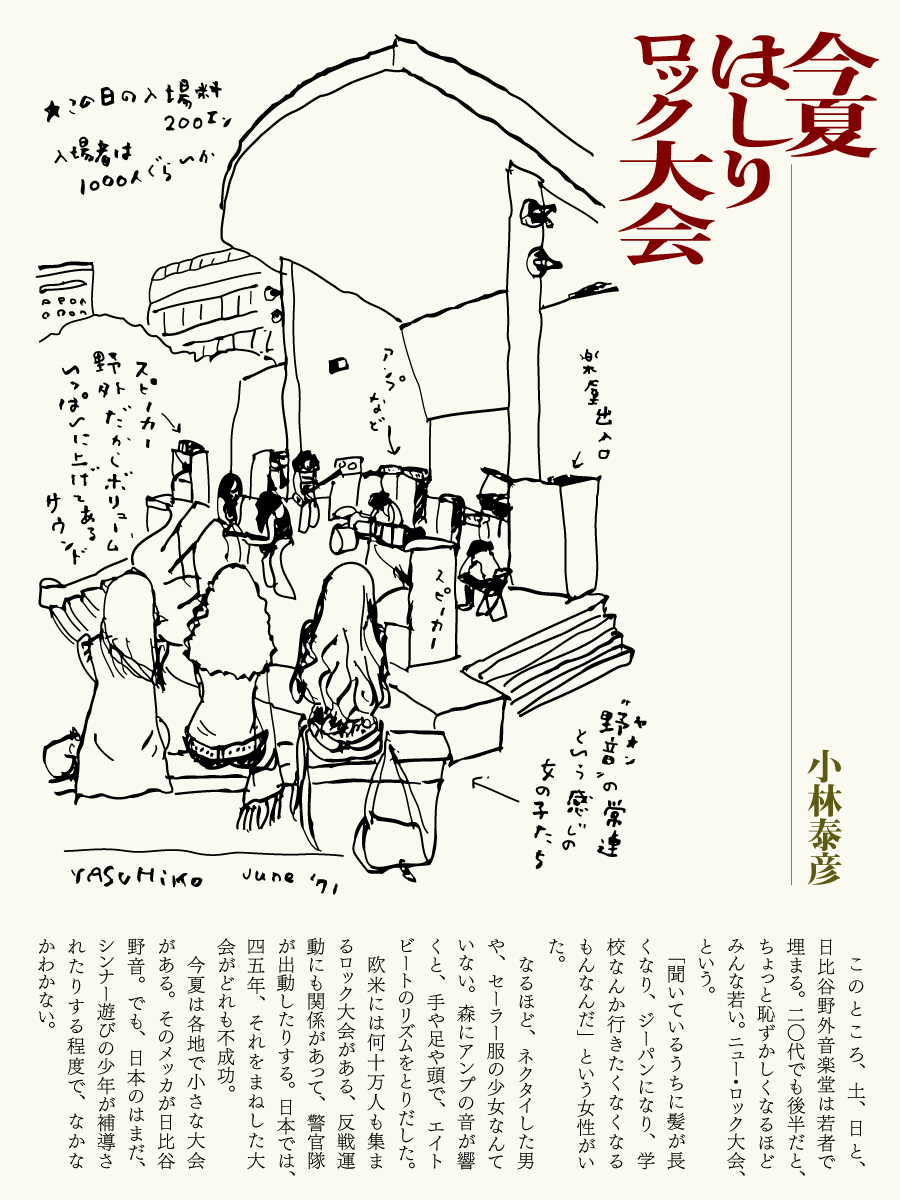 今夏
はしり
ロック大会
小林泰彦
★この日の入場料
200エン
入場者は
1000人ぐらいか
楽屋出入口
アンプ
など
スピーカー
野外だからボリューム
いっぱいに上げてある
サウンド
スピーカー
ヤオン
“野音”の常連
という感じの
女の子たち
YASUHIKO June '71
このところ、土、日と、
日比谷野外音楽堂は若者で
埋まる。二〇代でも後半だと、
ちょっと恥ずかしくなるほど
みんな若い。ニュー・ロック大会、
という。
「聞いているうちに髪が長
くなり、ジーパンになり、学
校なんか行きたくなくなる
もんなんだ」という女性がい
た。
なるほど、ネクタイした男
や、セーラー服の少女なんて
いない。森にアンプの音が響
くと、手や足や頭で、エイト
ビートのリズムをとりだした。
欧米には何十万人も集ま
るロック大会がある、反戦運
動にも関係があって、警官隊
が出動したりする。日本では、
四五年、それをまねした大
会がどれも不成功。
今夏は各地で小さな大会
がある。そのメッカが日比谷
野音。でも、日本のはまだ、
シンナー遊びの少年が補導さ
れたりする程度で、なかな
かわかない。